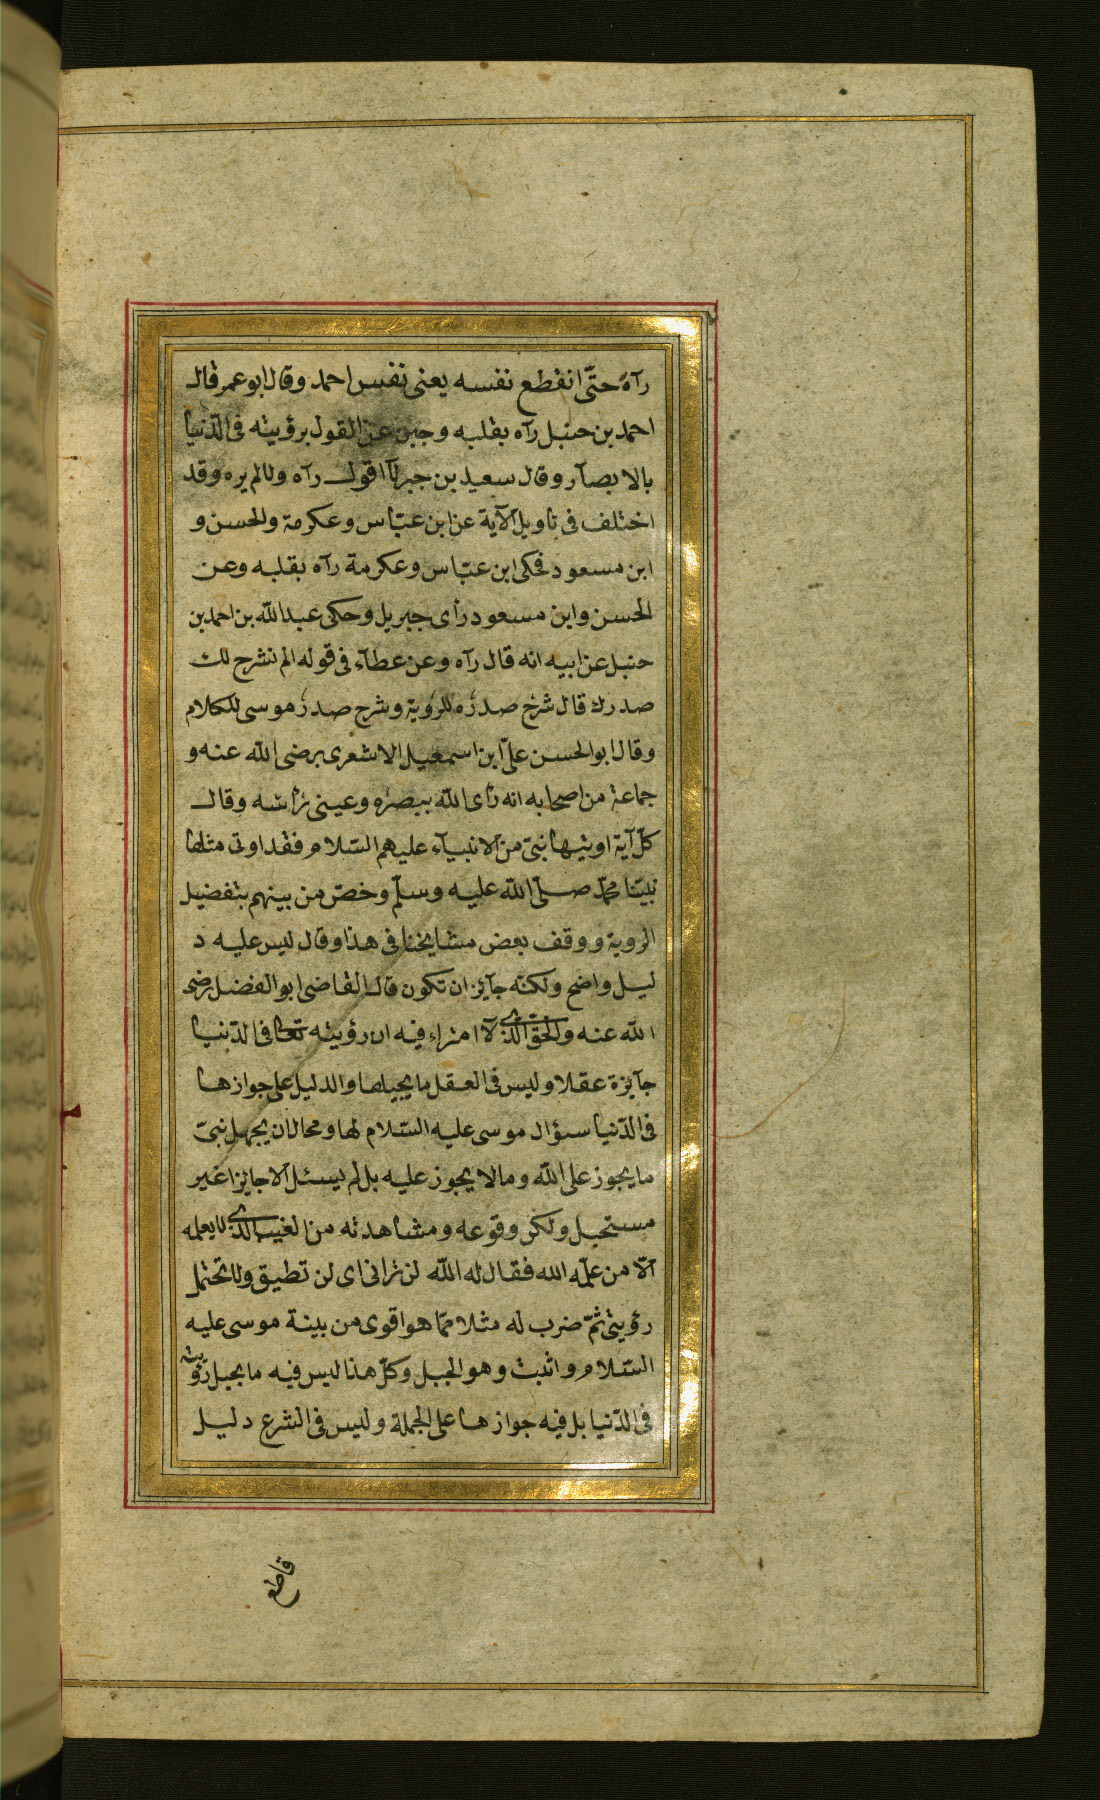 رآه حتّى انقطع نفسه يعنى نفس احمد وقال ابو عمر قال
احمد بن حنبل رآه بقلبه وجبن عن القول برؤيته فى الدّنيا
بالابصآر وقال سعيد بن جبر لآ اقول رآه ولا لم يره وقد
اختلف فى تاويل الآية عن ابن عبّاس وعكرمة والحسن و
ابن مسعود فحكى ابن عبّاس وعكرمة رآه بقلبه وعن
الحسن وابن مسعود رأى جبريل وحكى عبد الله بن احمد بن
حنبل عن ابيه انه قال رآه وعن عطآء فى قوله الم نشرح لك
صدرك قال شرح صدره للروية وشرح صدر موسى للكلام
وقال ابو الحسن علىّ ابن اسمعيل الاشعرى رضى الله عنه و
جماعة من اصحابه انه رأى الله ببصره وعينى رأسه وقال
كلّ آية اوتيها نبىّ من الانبيآء عليهم السّلام فقد اوتى مثلها
نبيّنا محمّد صلّى الله عليه وسلّم وخصّ من بينهم بتفضيل
الروية ووقف بعض مشايخنا فى هذا وقال ليس عليه د
ليل واضح ولكنّه جآيز ان تكون قال القاضى ابو الفضل رضى
الله عنه والحقّ الّذى لآ امترآء فيه ان رؤيته تعالى فى الدّنيا
جآيزة عقلا وليس فى العقل ما يحيلها والدليل على جوازها
فى الدّنيا سؤال موسى عليه السّلام لها ومحال ان يجهل نبىّ
ما يجوز على الله وما لا يجوز عليه بل لم يسئل الّا جايزا غير
مستحيل ولكن وقوعه ومشاهدته من الغيب الّذى لا يعلمه
الّا من علّمه الله فقال له الله لن ترانى اى لن تطيق ولا تحتمل
رؤيتى ثمّ ضرب له مثلا ممّا هو اقوى من بينة موسى عليه
السّلام واثبت وهو الجبل وكلّ هذا ليس فيه ما يحيل رؤيته
فى الدّنيا بل فيه جوازها على الجملة وليس فى الشرع دليل
قاطع